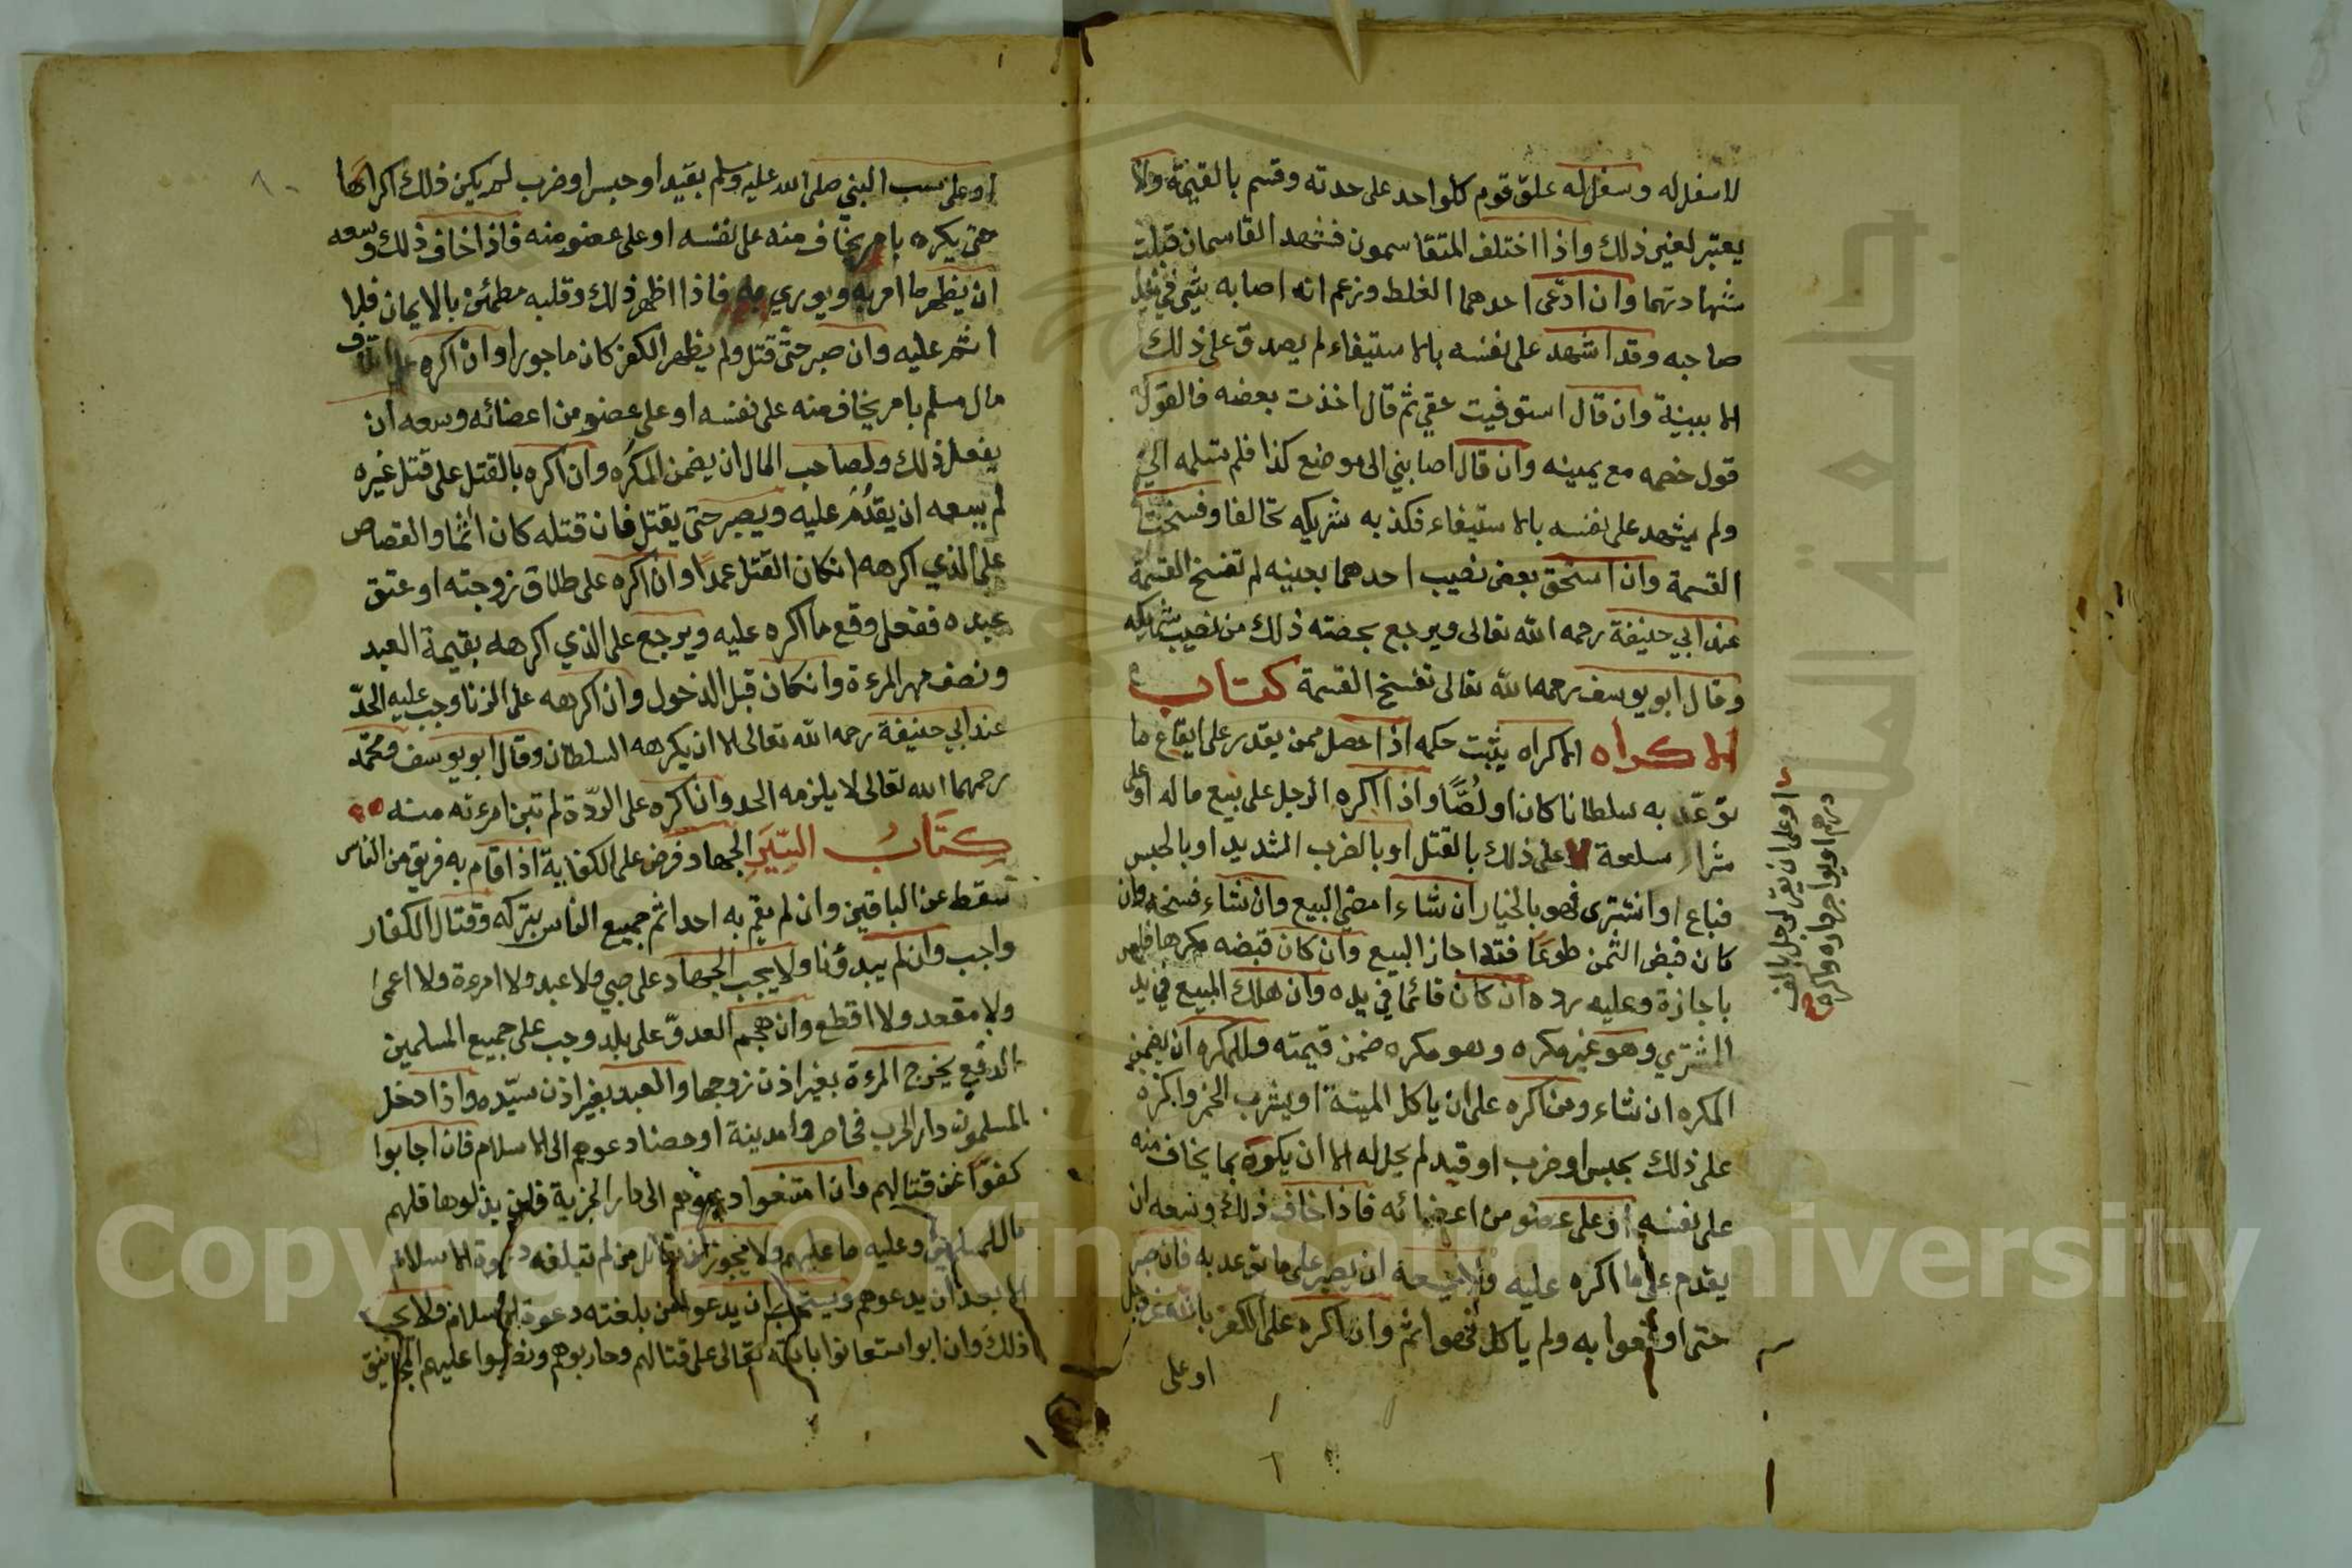 لا سفل له وسفل له علق قوم كلواحد على حدته وقسم بالقيمة ولا
يعتبر لغير ذلك واذا اختلف المتقاسمون فشهد القاسمان قبلت
شهادتهما وان ادّعى احدهما الغلط وزعم انه اصابه شي في يد
صاحبه وقد اشهد على نفسه بالاستيفاء لم يصدق على ذلك
الا ببينة وان قال استوفيت حقي ثم قال اخذت بعضه فالقول
قول خصمه مع يمينه وان قال اصابني الى موضع كذا فلم تسلمه الي
ولم يشهد على نفسه بالاستيفاء فكذبه شريكه تحالفا وفسخت
القسمة وان استحق بعض نصيب احدهما بعينه لم تفسخ القسمة
عند ابي حنيفة رحمه الله تعالى ويرجع بحصته ذلك من نصيب شريكه
وقال ابو يوسف رحمه الله تعالى تفسخ القسمة كتاب
الاكراه الاكراه يثبت حكمه اذا حصل ممن يقدر على ايقاع ما
توعّد به سلطانا كان او لصًّا واذا اكره الرجل على بيع ماله او على
شراء سلعة على ذلك بالقتل او بالضرب الشديد او بالحبس
فباع او اشترى فهو بالخيار ان شاء امضى البيع وان شاء فسخه وان
كان قبض الثمن طوعًا فقد اجاز البيع وان كان قبضه مكرها فليس
باجازة وعليه رده ان كان قائما في يده وان هلك المبيع في يد
المشتري وهو غير مكره وهو مكره ضمن قيمته وللمكره ان يضمن
المكره ان شاء ومن اكره على ان ياكل الميتة او يشرب الخمر واكره
على ذلك بحبس او ضرب او قيد لم يحل له الا ان يكره بما يخاف منه
على نفسه او على عضو من اعضائه فاذا خاف ذلك وسعه ان
يقدم على ما اكره عليه ولا يسعه ان يصبر على ما توعد به فان صبر
حتى اوقعوا به ولم ياكل فهو اثم وان اكره على الكفر بالله عز وجل
او على
او على ان يقر لرجل بالف
درهم او يواجر داره واكره
او على سب النبي صلى الله عليه وسلم بقيد او حبس او ضرب لم يكن ذلك اكراها
حتى يكره بامر يخاف منه على نفسه او على عضو منه فاذا خاف ذلك وسعه
ان يظهر ما امر به ويوري به فاذا اظهر ذلك وقلبه مطمئن بالايمان فلا
اثم عليه وان صبر حتى قتل ولم يظهر الكفر كان ماجورا وان اكره على اتلاف
مال مسلم بامر يخاف منه على نفسه او على عضو من اعضائه وسعه ان
يفعل ذلك ولصاحب المال ان يضمن المكره وان اكره بالقتل على قتل غيره
لم يسعه ان يقدُم عليه ويصبر حتى يقتل فان قتله كان اثما والقصاص
على الذي اكرهه انكان القتل عمدًا وان اكره على طلاق زوجته او عتق
عبده ففعل وقع ما اكره عليه ويرجع على الذي اكرهه بقيمة العبد
ونصف مهر المرءة وانكان قبل الدخول وان اكرهه على الزنا وجب عليه الحدّ
عند ابي حنيفة رحمه الله تعالى الا ان يكرهه السلطان وقال ابو يوسف ومحمّد
رحمهما الله تعالى لا يلزمه الحد وان اكره على الردّة لم تبن امرءته منه
كتابُ السِّيَرِ الجهاد فرض على الكفاية اذا قام به فريق من الناس
سقط عن الباقين وان لم يقم به احد اثم جميع الناس بتركه وقتال الكفار
واجب وان لم يبدؤنا ولا يجب الجهاد على صبي ولا عبد ولا امرءة ولا اعمى
ولا مقعد ولا اقطع وان هجم العدوّ على بلد وجب على جميع المسلمين
الدفع يخرج المرءة بغير اذن زوجها والعبد بغير اذن سيّده واذا دخل
المسلمون دار الحرب فحاصروا مدينة او حصنا دعوهم الى الاسلام فان اجابوا
كفوّا عن قتالهم وان امتنعوا دعوهم الى دار الجزية فان بذلوها فلهم
ما للمسلمين وعليه ما عليهم ولا يجوز ان يقاتل من لم تبلغه دعوة الاسلام
الا بعد ان يدعوهم ويستحب ان يدعو لمن بلغته دعوة الاسلام ولا يجب
ذلك وان ابوا استعانوا بالله تعالى على قتالهم وحاربوهم ونصبوا عليهم المجانيق
Copyright © King Saud University